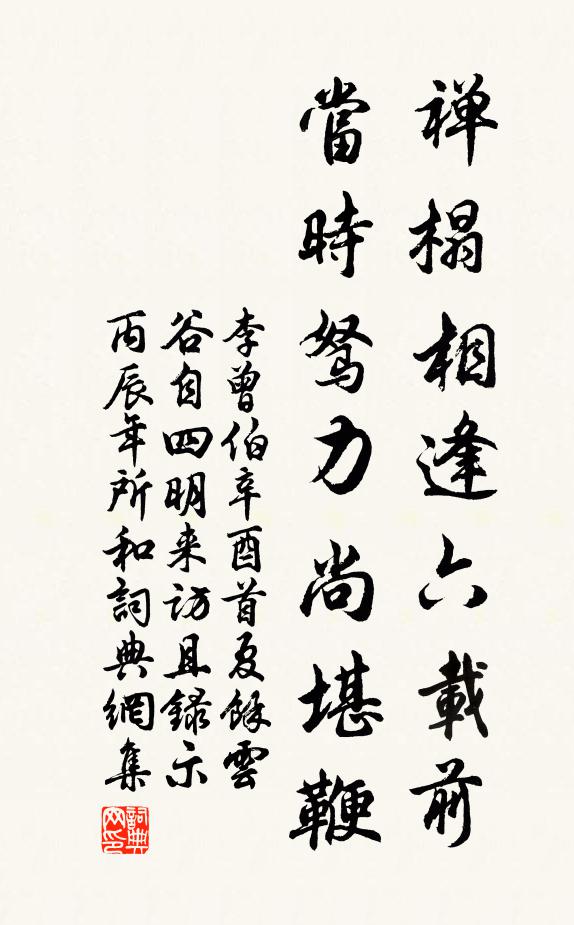 禅榻相逢六載前
當時駑力尚堪鞭
李曾伯辛酉首夏餘雲
谷自四明来訪且録示
丙辰年所和詞典網集
詞典网印